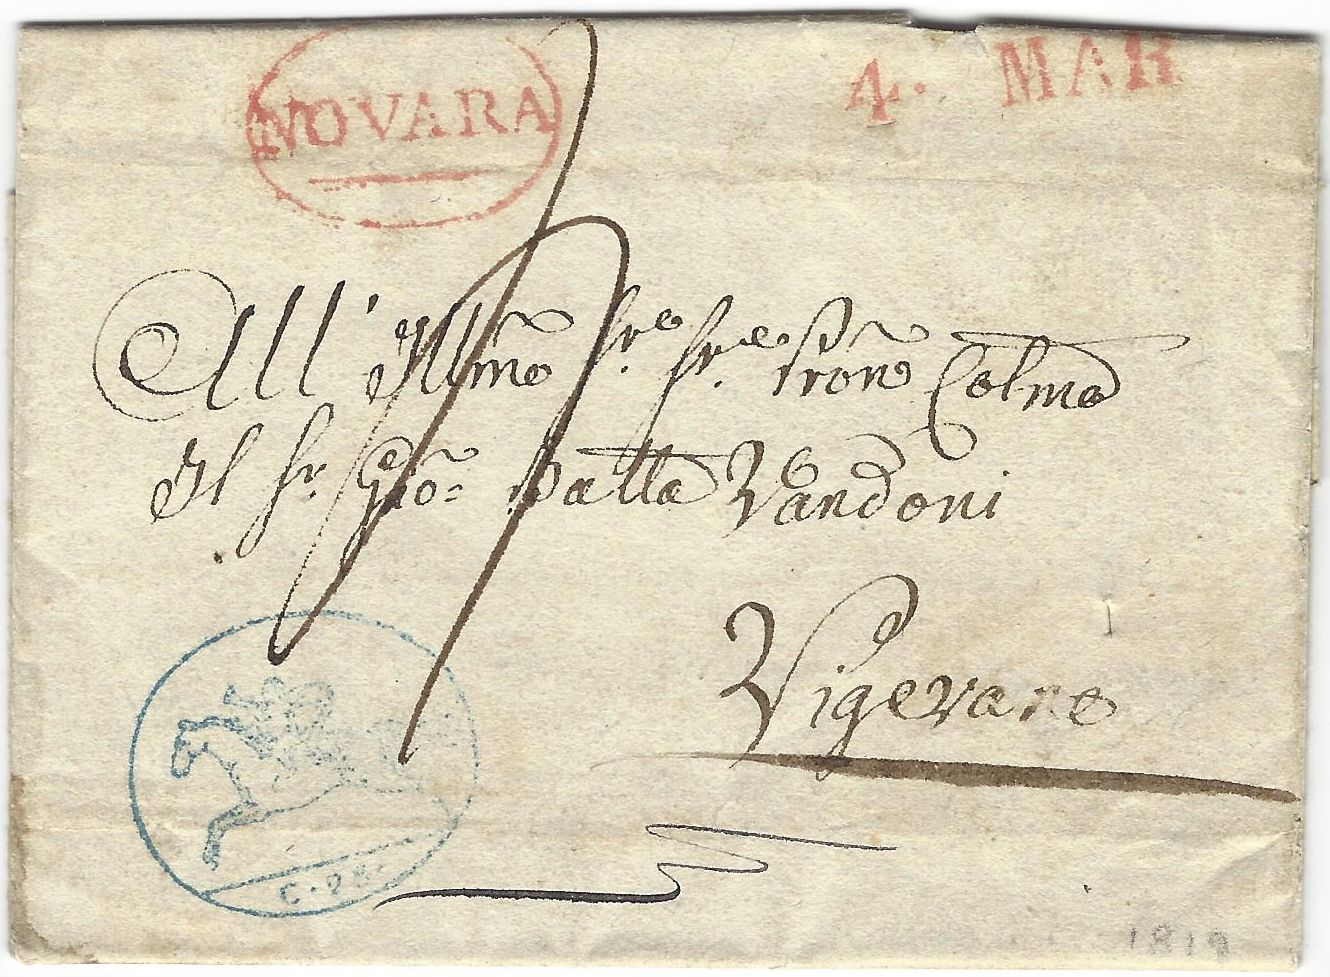 NOVARA
4. MAR
All' Illmo Sr.e Sr.e Pron Colmo
Il Sr. Gio: Batta Vandoni
Vigevano
C. 25
1819